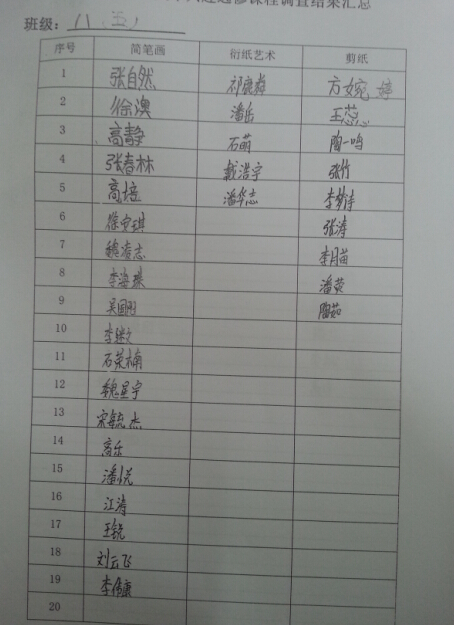 选修课程调查结果汇总
班级：八（五）
序号 简笔画 衍纸艺术 剪纸
1 张自然 祁晨森 方婉婷
2 徐澳 潘岳 王蕊
3 高静 石萌 陶一鸣
4 张春林 戴浩宇 张竹
5 高培 潘华志 李梦诗
6 徐安琪 张涛
7 魏凌志 李月苗
8 李海珠 潘荧
9 吴国彤 陶茹
10 李继文
11 石荣楠
12 魏星宇
13 宋毓杰
14 高乐
15 潘悦
16 江涛
17 王锐
18 刘云飞
19 李伟康
20